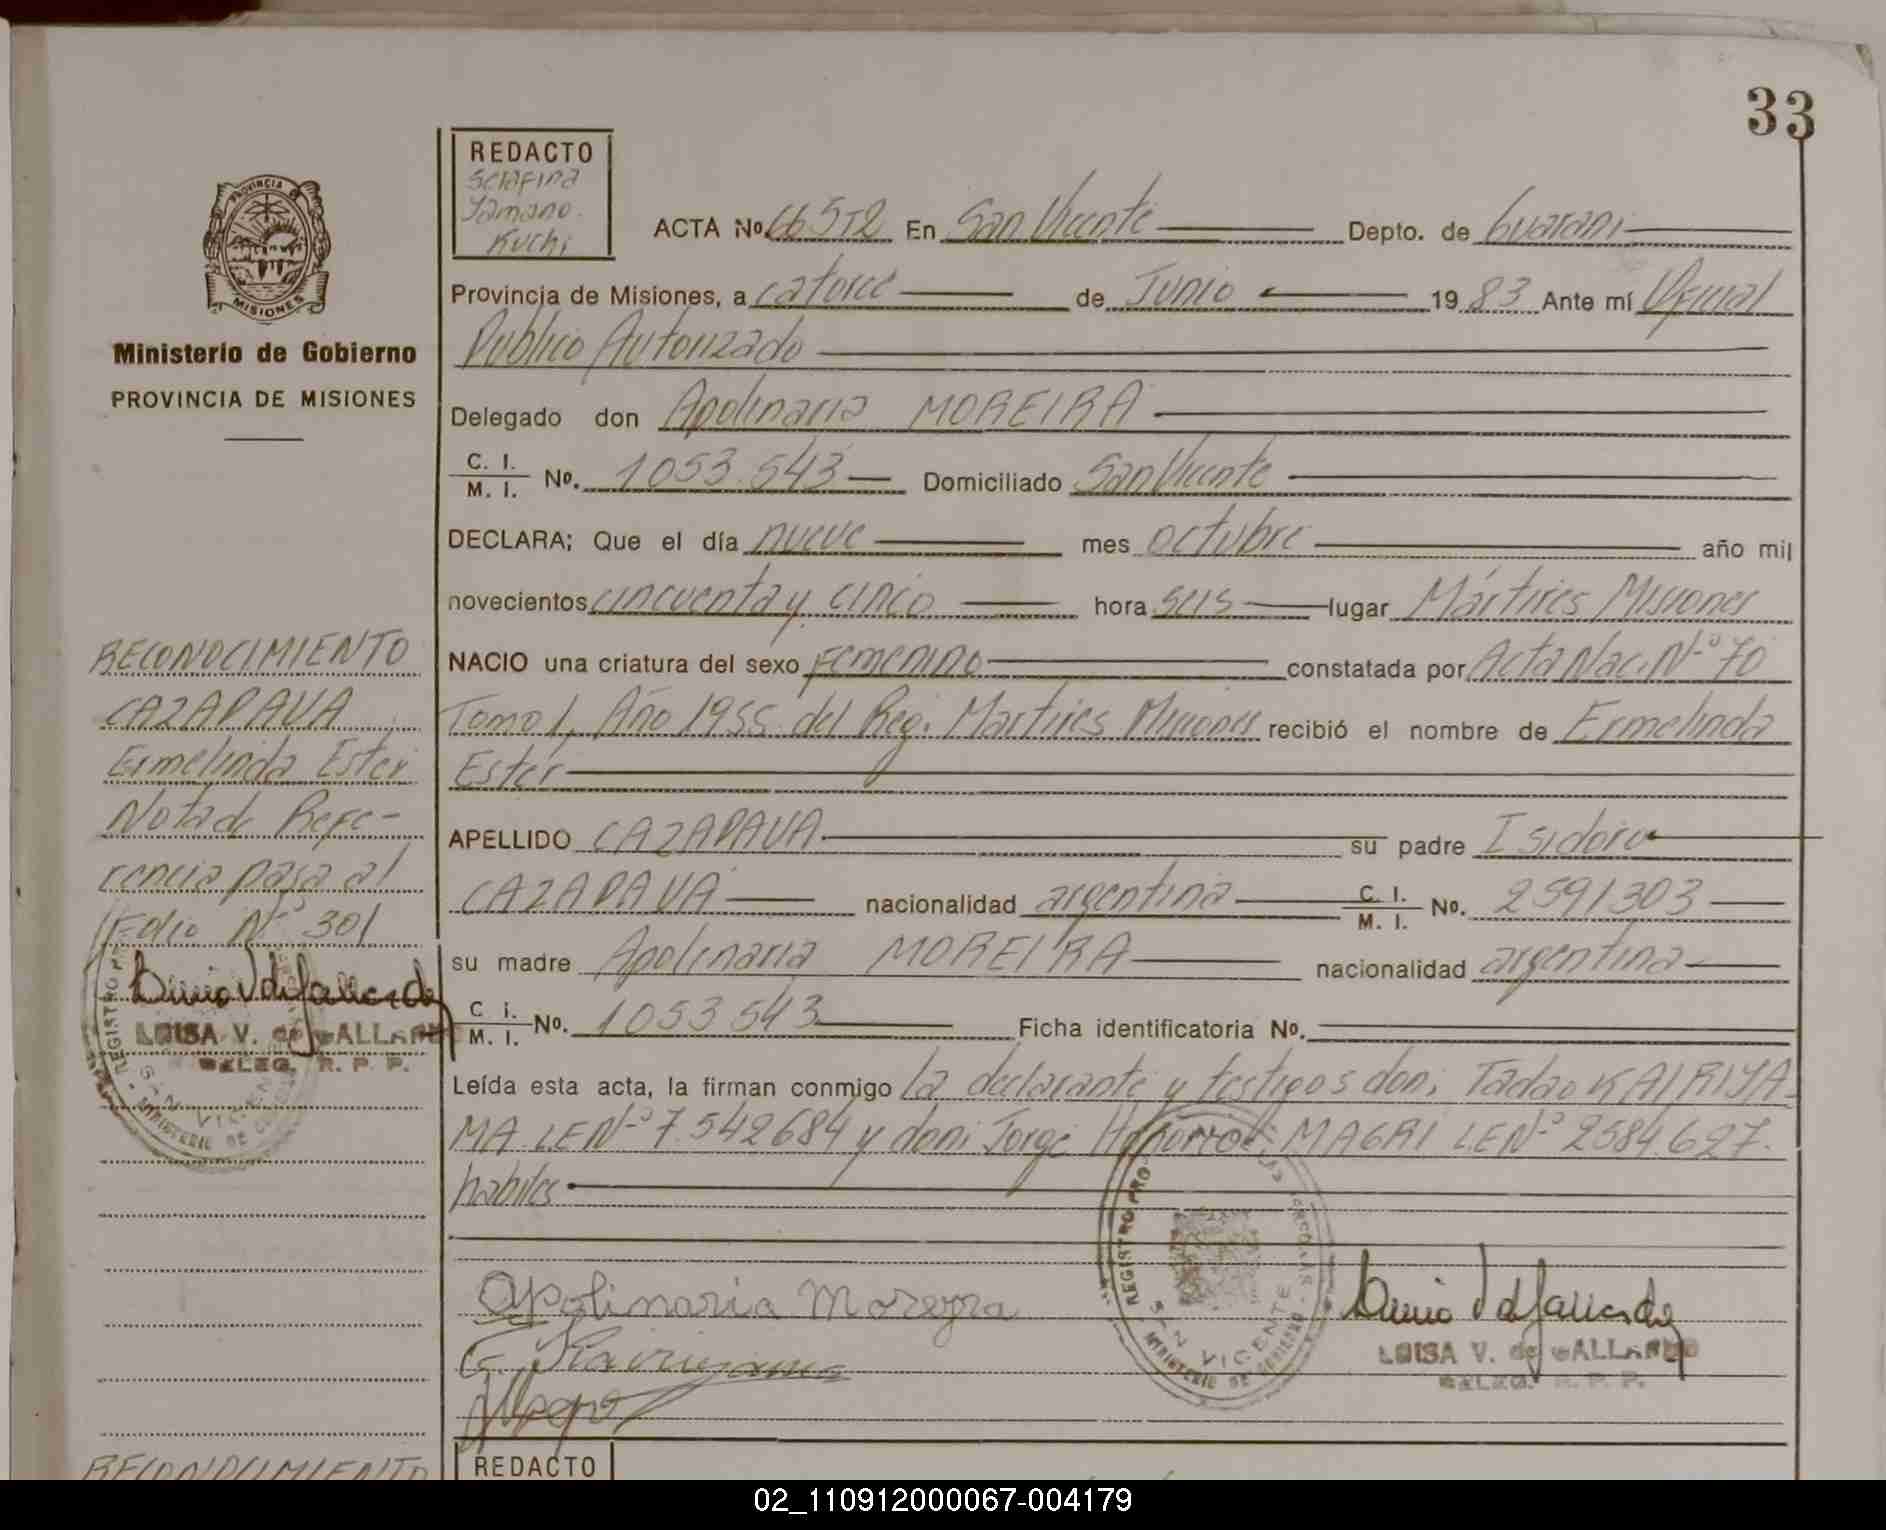 33
REDACTO
Serafina
Yamano
Kuchi
PROVINCIA DE
MISIONES
Ministerio de Gobierno
PROVINCIA DE MISIONES
ACTA Nº 66 5T2 En San Vicente Depto. de Guarani
Provincia de Misiones, a catorce de Junio 1983 Ante mí Oficial
Publico Autorizado
Delegado don Apolinaria MOREIRA
C. I.
M. I. Nº. 1053.543 Domiciliado San Vicente
DECLARA; Que el día nueve mes octubre año mil
novecientos cincuenta y cinco hora seis lugar Mártires Misiones
NACIO una criatura del sexo Femenino constatada por Acta Nac. Nº 70
Tomo 1, Año 1955 del Reg. Martires Misiones recibió el nombre de Ermelinda
Ester
APELLIDO CAZAPAVA su padre Isidoro
CAZAPAVA nacionalidad argentina C. I. M. I. Nº. 2591303
su madre Apolinaria MOREIRA nacionalidad argentina
C. I.
M. I. Nº. 1053543 Ficha identificatoria Nº.
Leída esta acta, la firman conmigo la declarante y testigos don: Tadao KAIRIYA-
MA LE Nº 7.542684 y don: Jorge MAGRI LE Nº 2584.627.
habiles
Apolinaria Moreyra
REGISTRO PRO
SAN VICENTE
MINISTERIO DE GOBIERNO
LUISA V. de GALLARDO
DELEG. R. P. P.
RECONOCIMIENTO
CAZAPAVA
Ermelinda Ester
Nota de Refe-
rencia pasa al
Folio Nº 301
LUISA V. de GALLARDO
DELEG. R. P. P.
REGISTRO
SAN VICEN
MINISTERIO DE
RECONOCIMIENTO
REDACTO
02_110912000067-004179